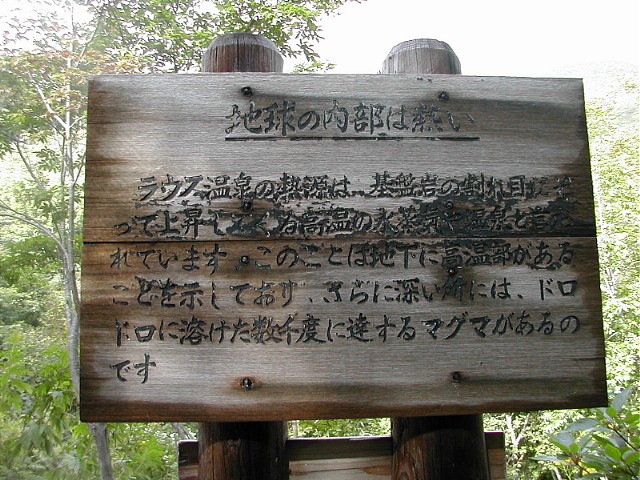 地球の内部は熱い
ラウス温泉の熱源は、基盤岩の割れ目にそ
って上昇してくる高温の水蒸気や温泉と考え
れています。このことは地下に高温部がある
ことを示しており、さらに深い所には、ドロ
ドロに溶けた数千度に達するマグマがあるの
です